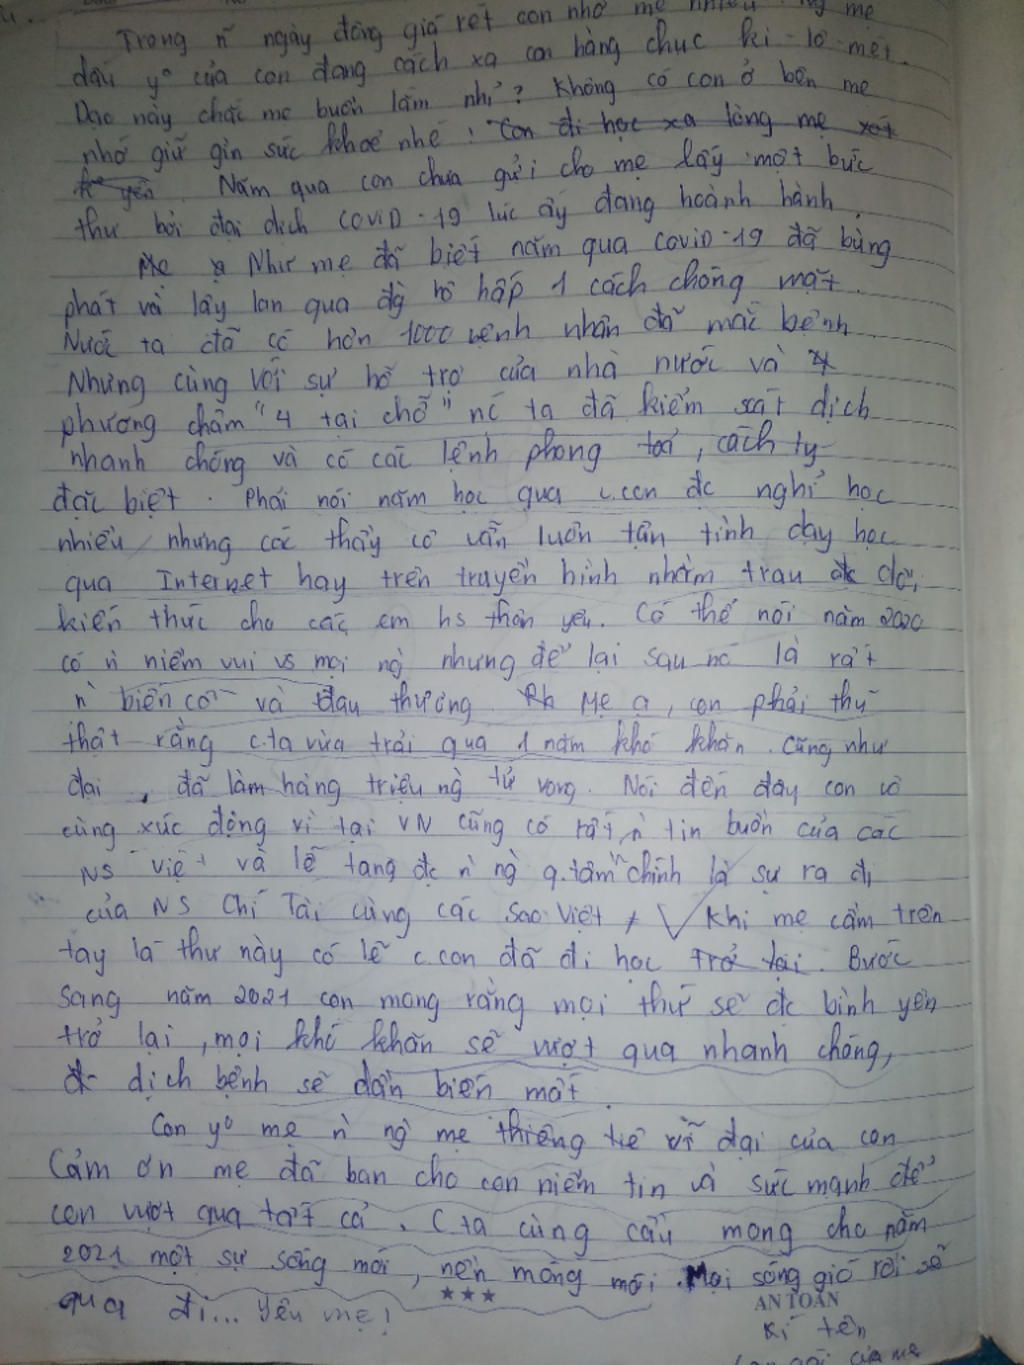 Trong ñ ngày đông giá rét con nhớ mẹ nhiều mẹ
dấu yº của con đang cách xa con hàng chục ki-lô-mét.
Dạo này chắc mẹ buồn lắm nhỉ? Không có con ở bên mẹ
nhớ giữ gìn sức khoẻ nhé! Con đi học xa lòng mẹ xót
yên. Năm qua con chưa gửi cho mẹ lấy một bức
thư bởi đại dịch COVID-19 lúc ấy đang hoành hành.
Mẹ ạ Như mẹ đã biết năm qua covid-19 đã bùng
phát và lây lan qua đg hô hấp 1 cách chóng mặt.
Nước ta đã có hơn 1000 bệnh nhân đã mắc bệnh
Nhưng cùng với sự hỗ trợ của nhà nước và 4
phương châm "4 tại chỗ" nc ta đã kiểm soát dịch
nhanh chóng và có các lệnh phong toả, cách ly
đặc biệt. Phải nói năm học qua c.con đc nghỉ học
nhiều nhưng các thầy cô vẫn luôn tận tình dạy học
qua Internet hay trên truyền hình nhằm trau dồi
kiến thức cho các em hs thân yêu. Có thể nói năm 2020
có ñ niềm vui vs mọi ng` nhưng để lại sau nó là rất
ñ biến cố và đau thương. Mẹ ạ, con phải thú
thật rằng c.ta vừa trải qua 1 năm khó khăn. Cũng như
đại, đã làm hàng triệu ng` tử vong. Nói đến đây con vô
cùng xúc động vì tại VN cũng có rất ñ tin buồn của các
NS việt và lễ tang đc ñ ng` q.tâm chính là sự ra đi
của NS Chí Tài cùng các sao Việt, Khi mẹ cầm trên
tay lá thư này có lẽ c.con đã đi học trở lại. Bước
sang năm 2021 con mong rằng mọi thứ sẽ đc bình yên
trở lại, mọi khó khăn sẽ vượt qua nhanh chóng,
dịch bệnh sẽ dần biến mất.
Con yº mẹ ñ ng` mẹ thiêng liêng vĩ đại của con
Cảm ơn mẹ đã ban cho con niềm tin và sức mạnh để
con vượt qua tất cả. C ta cùng cầu mong cho năm
2021 một sự sống mới, nền móng mới. Mọi sóng gió rồi sẽ
qua đi... Yêu mẹ!
★★★
AN TOÀN
Kí tên
con gái của mẹ